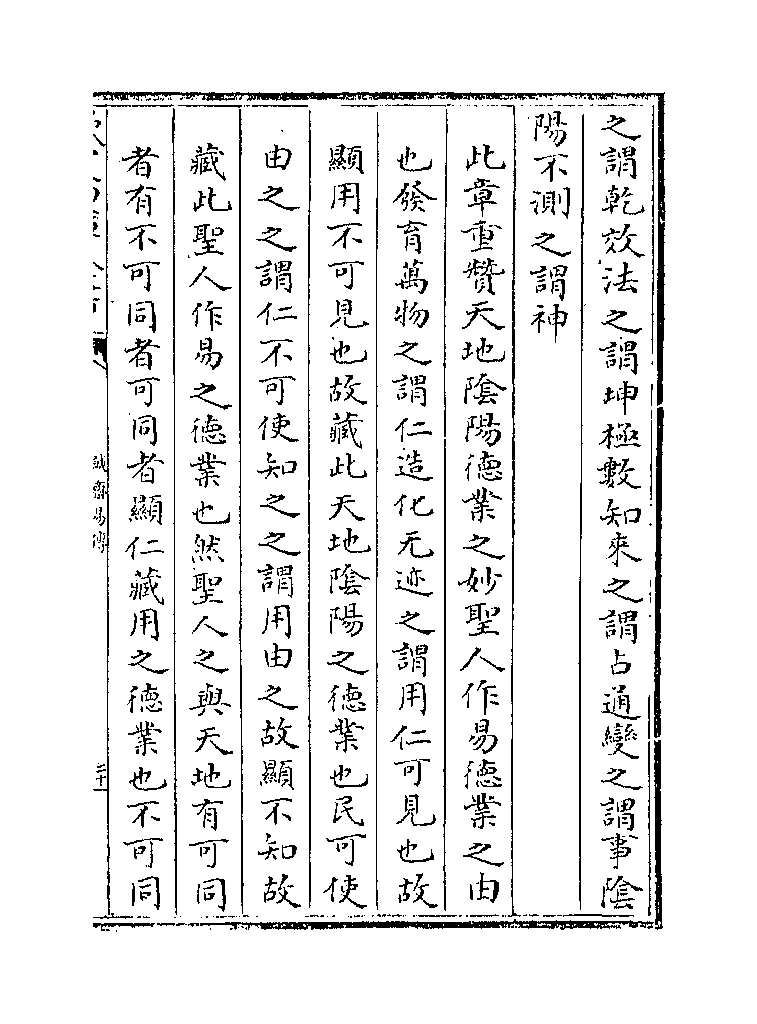 之謂乾效法之謂坤極數知來之謂占通變之謂事陰
陽不測之謂神
此章重贊天地陰陽德業之妙聖人作易德業之由
也發育萬物之謂仁造化无迹之謂用仁可見也故
顯用不可見也故藏此天地陰陽之德業也民可使
由之之謂仁不可使知之之謂用由之故顯不知故
藏此聖人作易之德業也然聖人之與天地有可同
者有不可同者可同者顯仁藏用之德業也不可同
誠齋易傳
三十